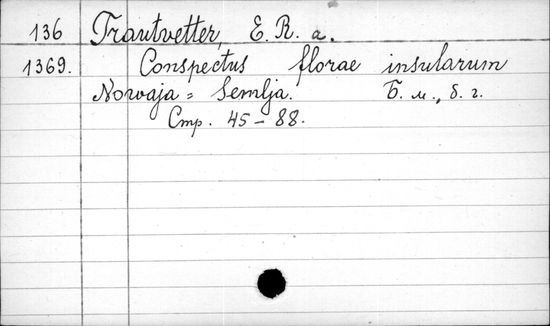 136 Trautvetter, E. R. a.
1369. Conspectus florae insularum
Nowaja = Semlja. Б. м., б. г.
Стр. 45 – 88.